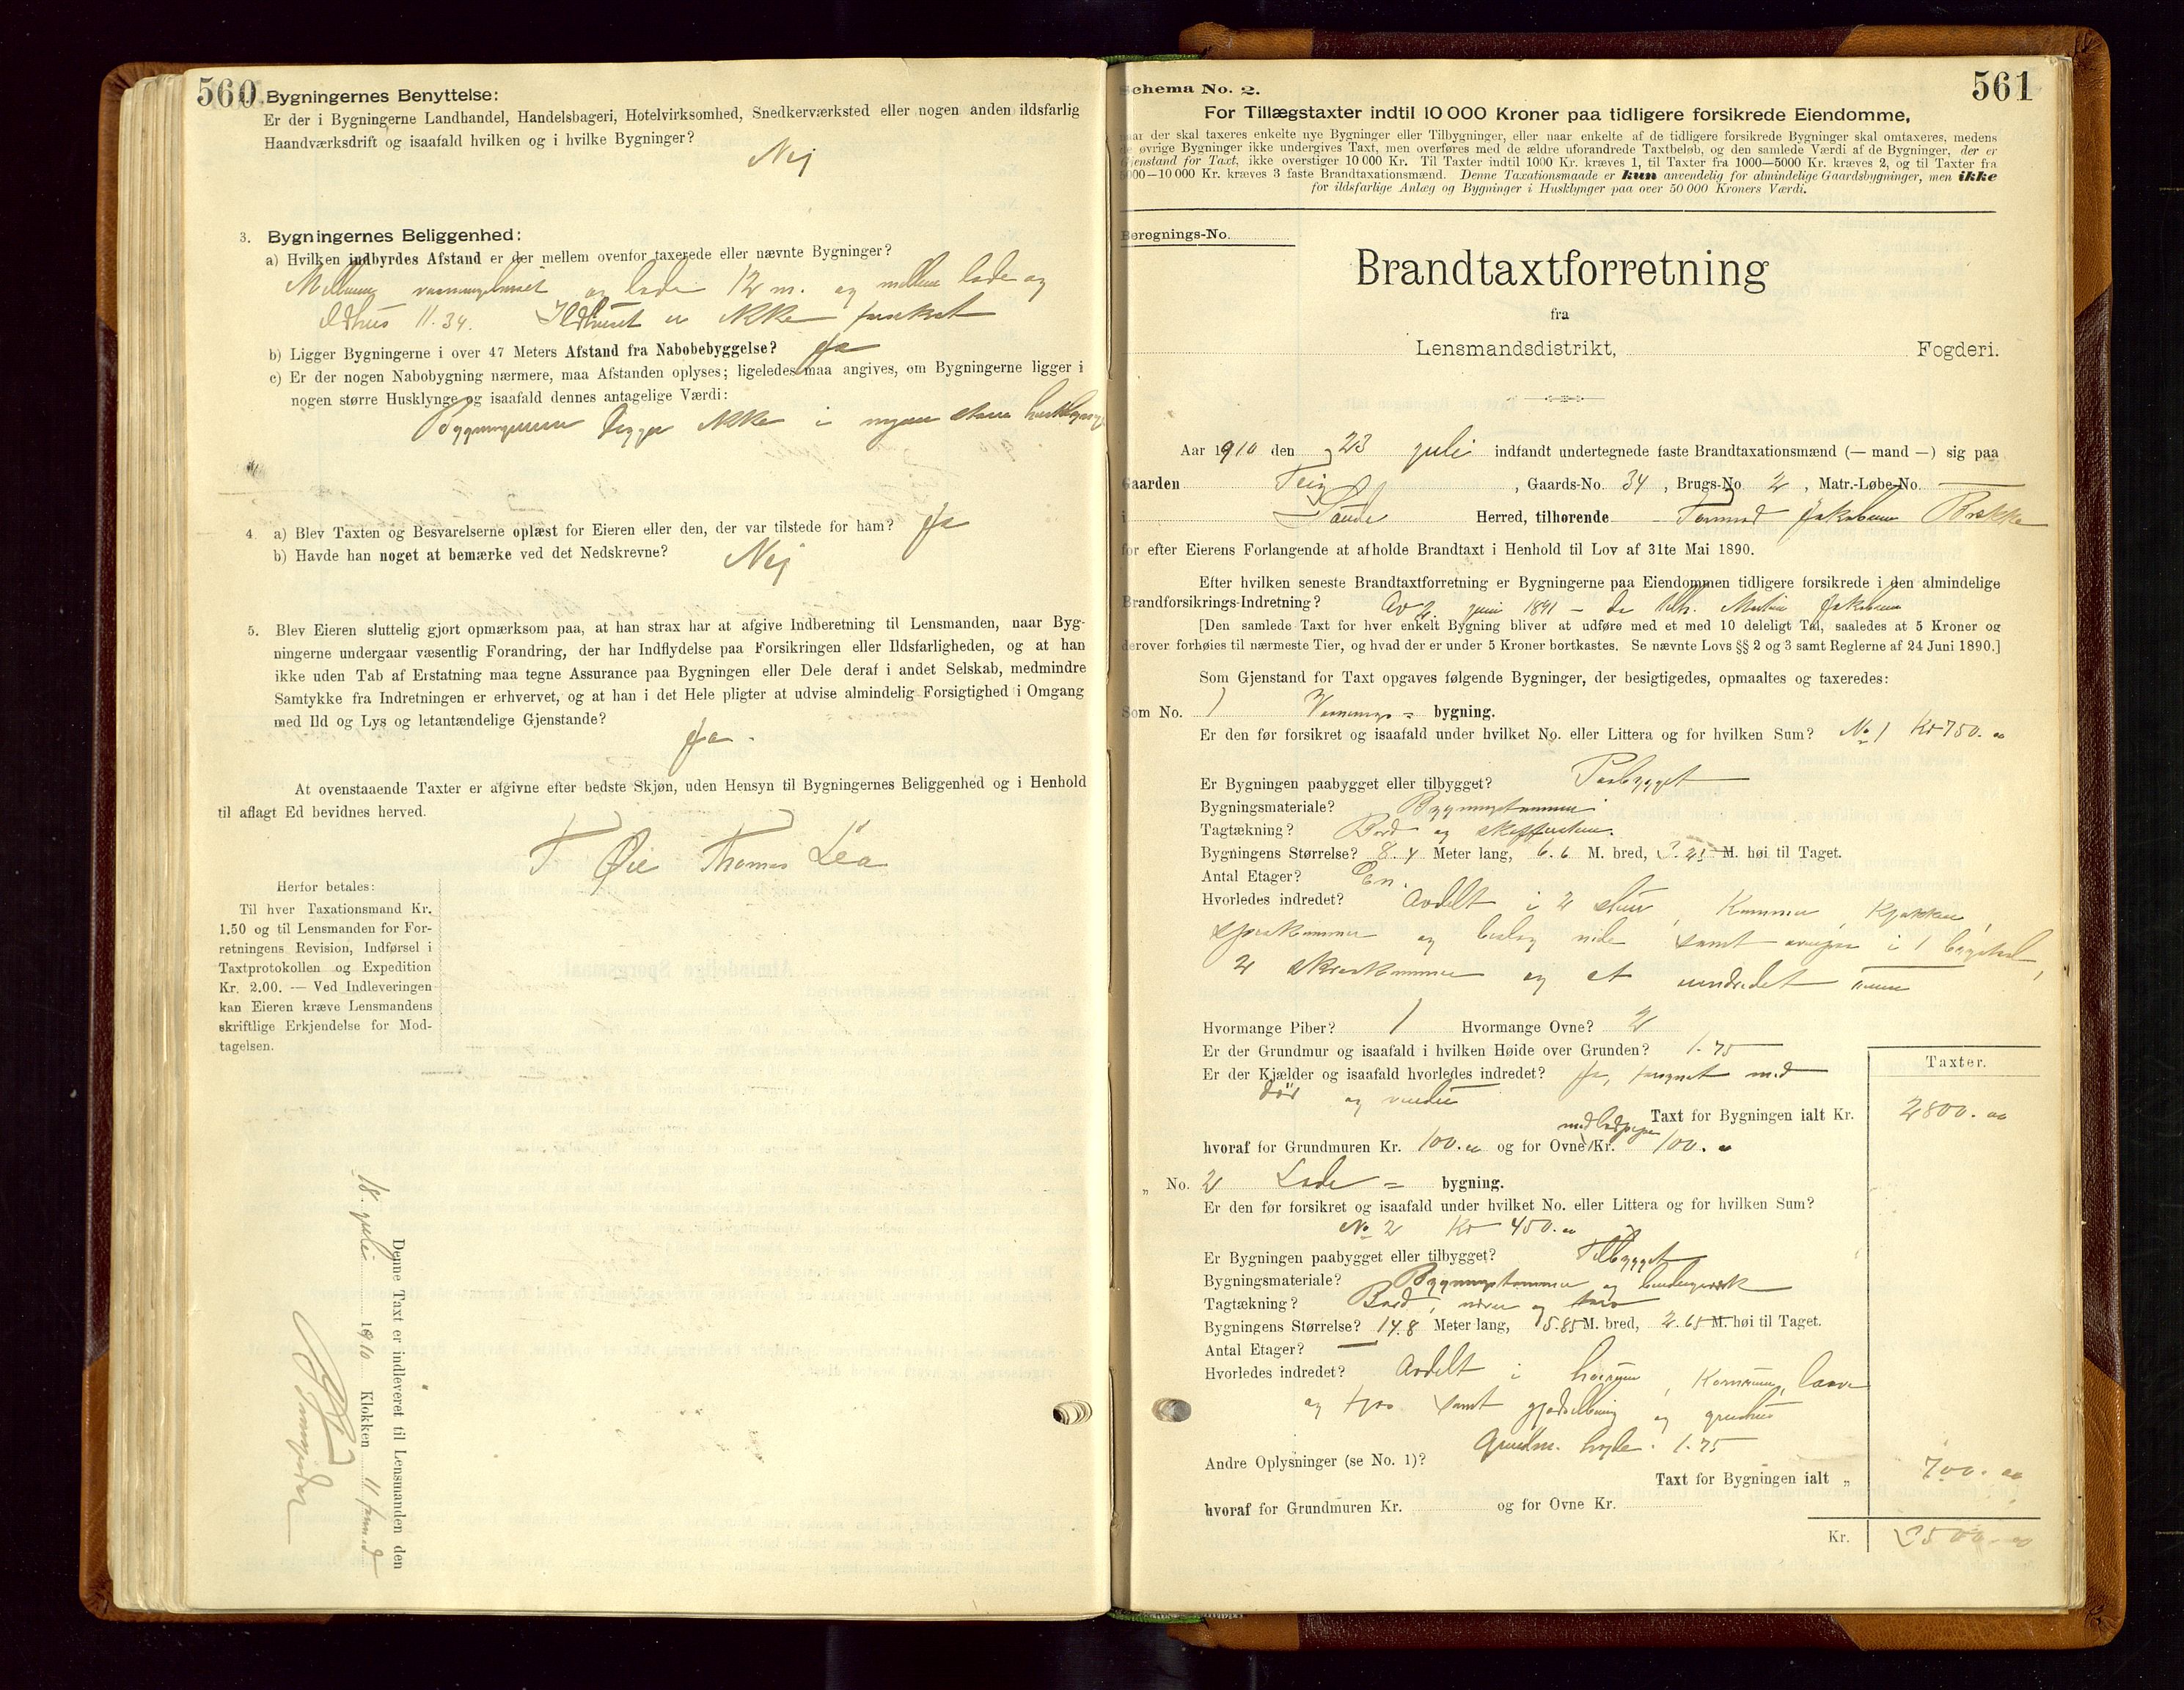 560
Bygningernes Benyttelse:
Er der i Bygningerne Landhandel, Handelsbageri, Hotelvirksomhed, Snedkerværksted eller nogen anden ildsfarlig
Haandværksdrift og isaafald hvilken og i hvilke Bygninger?
Nej
3. Bygningernes Beliggenhed:
a) Hvilken indbyrdes Afstand er der mellem ovenfor taxerede eller nævnte Bygninger?
Mellem vaaningshuset og lade 12 m. og mellem lade og
ildhus 11.34. Ildhuset er ikke forsikret
b) Ligger Bygningerne i over 47 Meters Afstand fra Nabobebyggelse? Ja
c) Er der nogen Nabobygning nærmere, maa Afstanden oplyses; ligeledes maa angives, om Bygningerne ligger i
nogen større Husklynge og isaafald dennes antagelige Værdi:
Bygningerne ligger ikke i nogen større husklynge
4. a) Blev Taxten og Besvarelserne oplæst for Eieren eller den, der var tilstede for ham? Ja
b) Havde han noget at bemærke ved det Nedskrevne? Nej
5. Blev Eieren sluttelig gjort opmærksom paa, at han strax har at afgive Indberetning til Lensmanden, naar Byg-
ningerne undergaar væsentlig Forandring, der har Indflydelse paa Forsikringen eller Ildsfarligheden, og at han
ikke uden Tab af Erstatning maa tegne Assurance paa Bygningen eller Dele deraf i andet Selskab, medmindre
Samtykke fra Indretningen er erhvervet, og at han i det Hele pligter at udvise almindelig Forsigtighed i Omgang
med Ild og Lys og letantændelige Gjenstande?
Ja.
At ovenstaaende Taxter er afgivne efter bedste Skjøn, uden Hensyn til Bygningernes Beliggenhed og i Henhold
til aflagt Ed bevidnes herved.
T Øie Thomas Lea
Herfor betales:
Til hver Taxationsmand Kr.
1.50 og til Lensmanden for For-
retningens Revision, Indførsel i
Taxtprotokollen og Expedition
Kr. 2.00. — Ved Indleveringen
kan Eieren kræve Lensmandens
skriftlige Erkjendelse for Mod-
tagelsen.
Denne Taxt er indleveret til Lensmanden den
18. juli 1910 Klokken 11 form.
561
Schema No. 2.
For Tillægstaxter indtil 10 000 Kroner paa tidligere forsikrede Eiendomme,
naar der skal taxeres enkelte nye Bygninger eller Tilbygninger, eller naar enkelte af de tidligere forsikrede Bygninger skal omtaxeres, medens
de øvrige Bygninger ikke undergives Taxt, men overføres med de ældre uforandrede Taxtbeløb, og den samlede Værdi af de Bygninger, der er
Gjenstand for Taxt, ikke overstiger 10 000 Kr. Til Taxter indtil 1000 Kr. kræves 1, til Taxter fra 1000—5000 Kr. kræves 2, og til Taxter fra
5000—10 000 Kr. kræves 3 faste Brandtaxationsmænd. Denne Taxationsmaade er kun anvendelig for almindelige Gaardsbygninger, men ikke
for ildsfarlige Anlæg og Bygninger i Husklynger paa over 50 000 Kroners Værdi.
Beregnings-No.
Brandtaxtforretning
fra
Lensmandsdistrikt, Fogderi.
Aar 1910 den 23 juli indfandt undertegnede faste Brandtaxationsmænd (— mand —) sig paa
Gaarden Teig, Gaards-No. 34, Brugs-No. 2, Matr.-Løbe-No.
i Sande Herred, tilhørende Jakobsen Brekke
for efter Eierens Forlangende at afholde Brandtaxt i Henhold til Lov af 31te Mai 1890.
Efter hvilken seneste Brandtaxtforretning er Bygningerne paa Eiendommen tidligere forsikrede i den almindelige
Brandforsikrings-Indretning? Av 2. juni 1891 – da tilh. Jakobsen
[Den samlede Taxt for hver enkelt Bygning bliver at udføre med et med 10 deleligt Tal, saaledes at 5 Kroner og
derover forhøies til nærmeste Tier, og hvad der er under 5 Kroner bortkastes. Se nævnte Lovs §§ 2 og 3 samt Reglerne af 24 Juni 1890.]
Som Gjenstand for Taxt opgaves følgende Bygninger, der besigtigedes, opmaaltes og taxeredes:
Som No. 1 Vaanings= bygning.
Er den før forsikret og isaafald under hvilket No. eller Littera og for hvilken Sum? No 1 Kr 750.00
Er Bygningen paabygget eller tilbygget? Paabygget
Bygningsmateriale? Bygningstømmer
Tagtækning? Bord og
Bygningens Størrelse? 8.4 Meter lang, 6.6 M. bred, M. høi til Taget.
Antal Etager? En.
Hvorledes indredet? Avdelt i 2 stuer, Kammer, Kjøkken,
spiskammer og bislag nede samt ovenpaa i 1
2 og et uindredet rum
Hvormange Piber? 1 Hvormange Ovne? 2
Er der Grundmur og isaafald i hvilken Høide over Grunden? 1.75
Er der Kjælder og isaafald hvorledes indredet? Ja, forsynet med
dør og vindu
Taxter.
Taxt for Bygningen ialt Kr. 2800.00
hvoraf for Grundmuren Kr. 100.00 og for Ovne Kr. 100.00
„ No. 2 Lade= bygning.
Er den før forsikret og isaafald under hvilket No. eller Littera og for hvilken Sum?
No 2 Kr 450.00
Er Bygningen paabygget eller tilbygget? Tilbygget
Bygningsmateriale? Bygningstømmer og bindingsverk
Tagtækning? Bord, never og torv
Bygningens Størrelse? 14.8 Meter lang, 5.85 M. bred, 2.65 M. høi til Taget.
Antal Etager? —
Hvorledes indredet? Avdelt i høirum, Kornrum, laave
og fjøs samt og
Grundm. høide. 1.75
Andre Oplysninger (se No. 1)?
Taxt for Bygningen ialt „ 700.00
hvoraf for Grundmuren Kr. og for Ovne Kr.
Kr. 3500.00